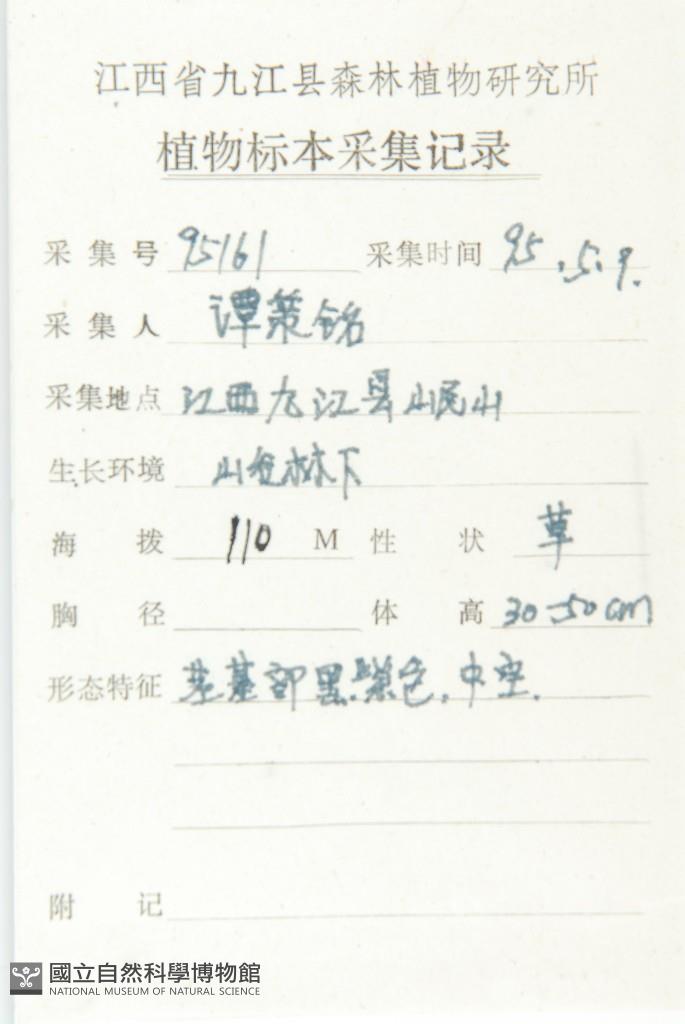 江西省九江县森林植物研究所
植物标本采集记录
采集号 95161 采集时间 95.5.9.
采集人 谭策铭
采集地点 江西九江县岷山
生长环境 山包林下
海拨 110 M 性状 草
胸径 体高 30-50cm
形态特征 茎基部黑紫色,中空.
附记
國立自然科學博物館
NATIONAL MUSEUM OF NATURAL SCIENCE